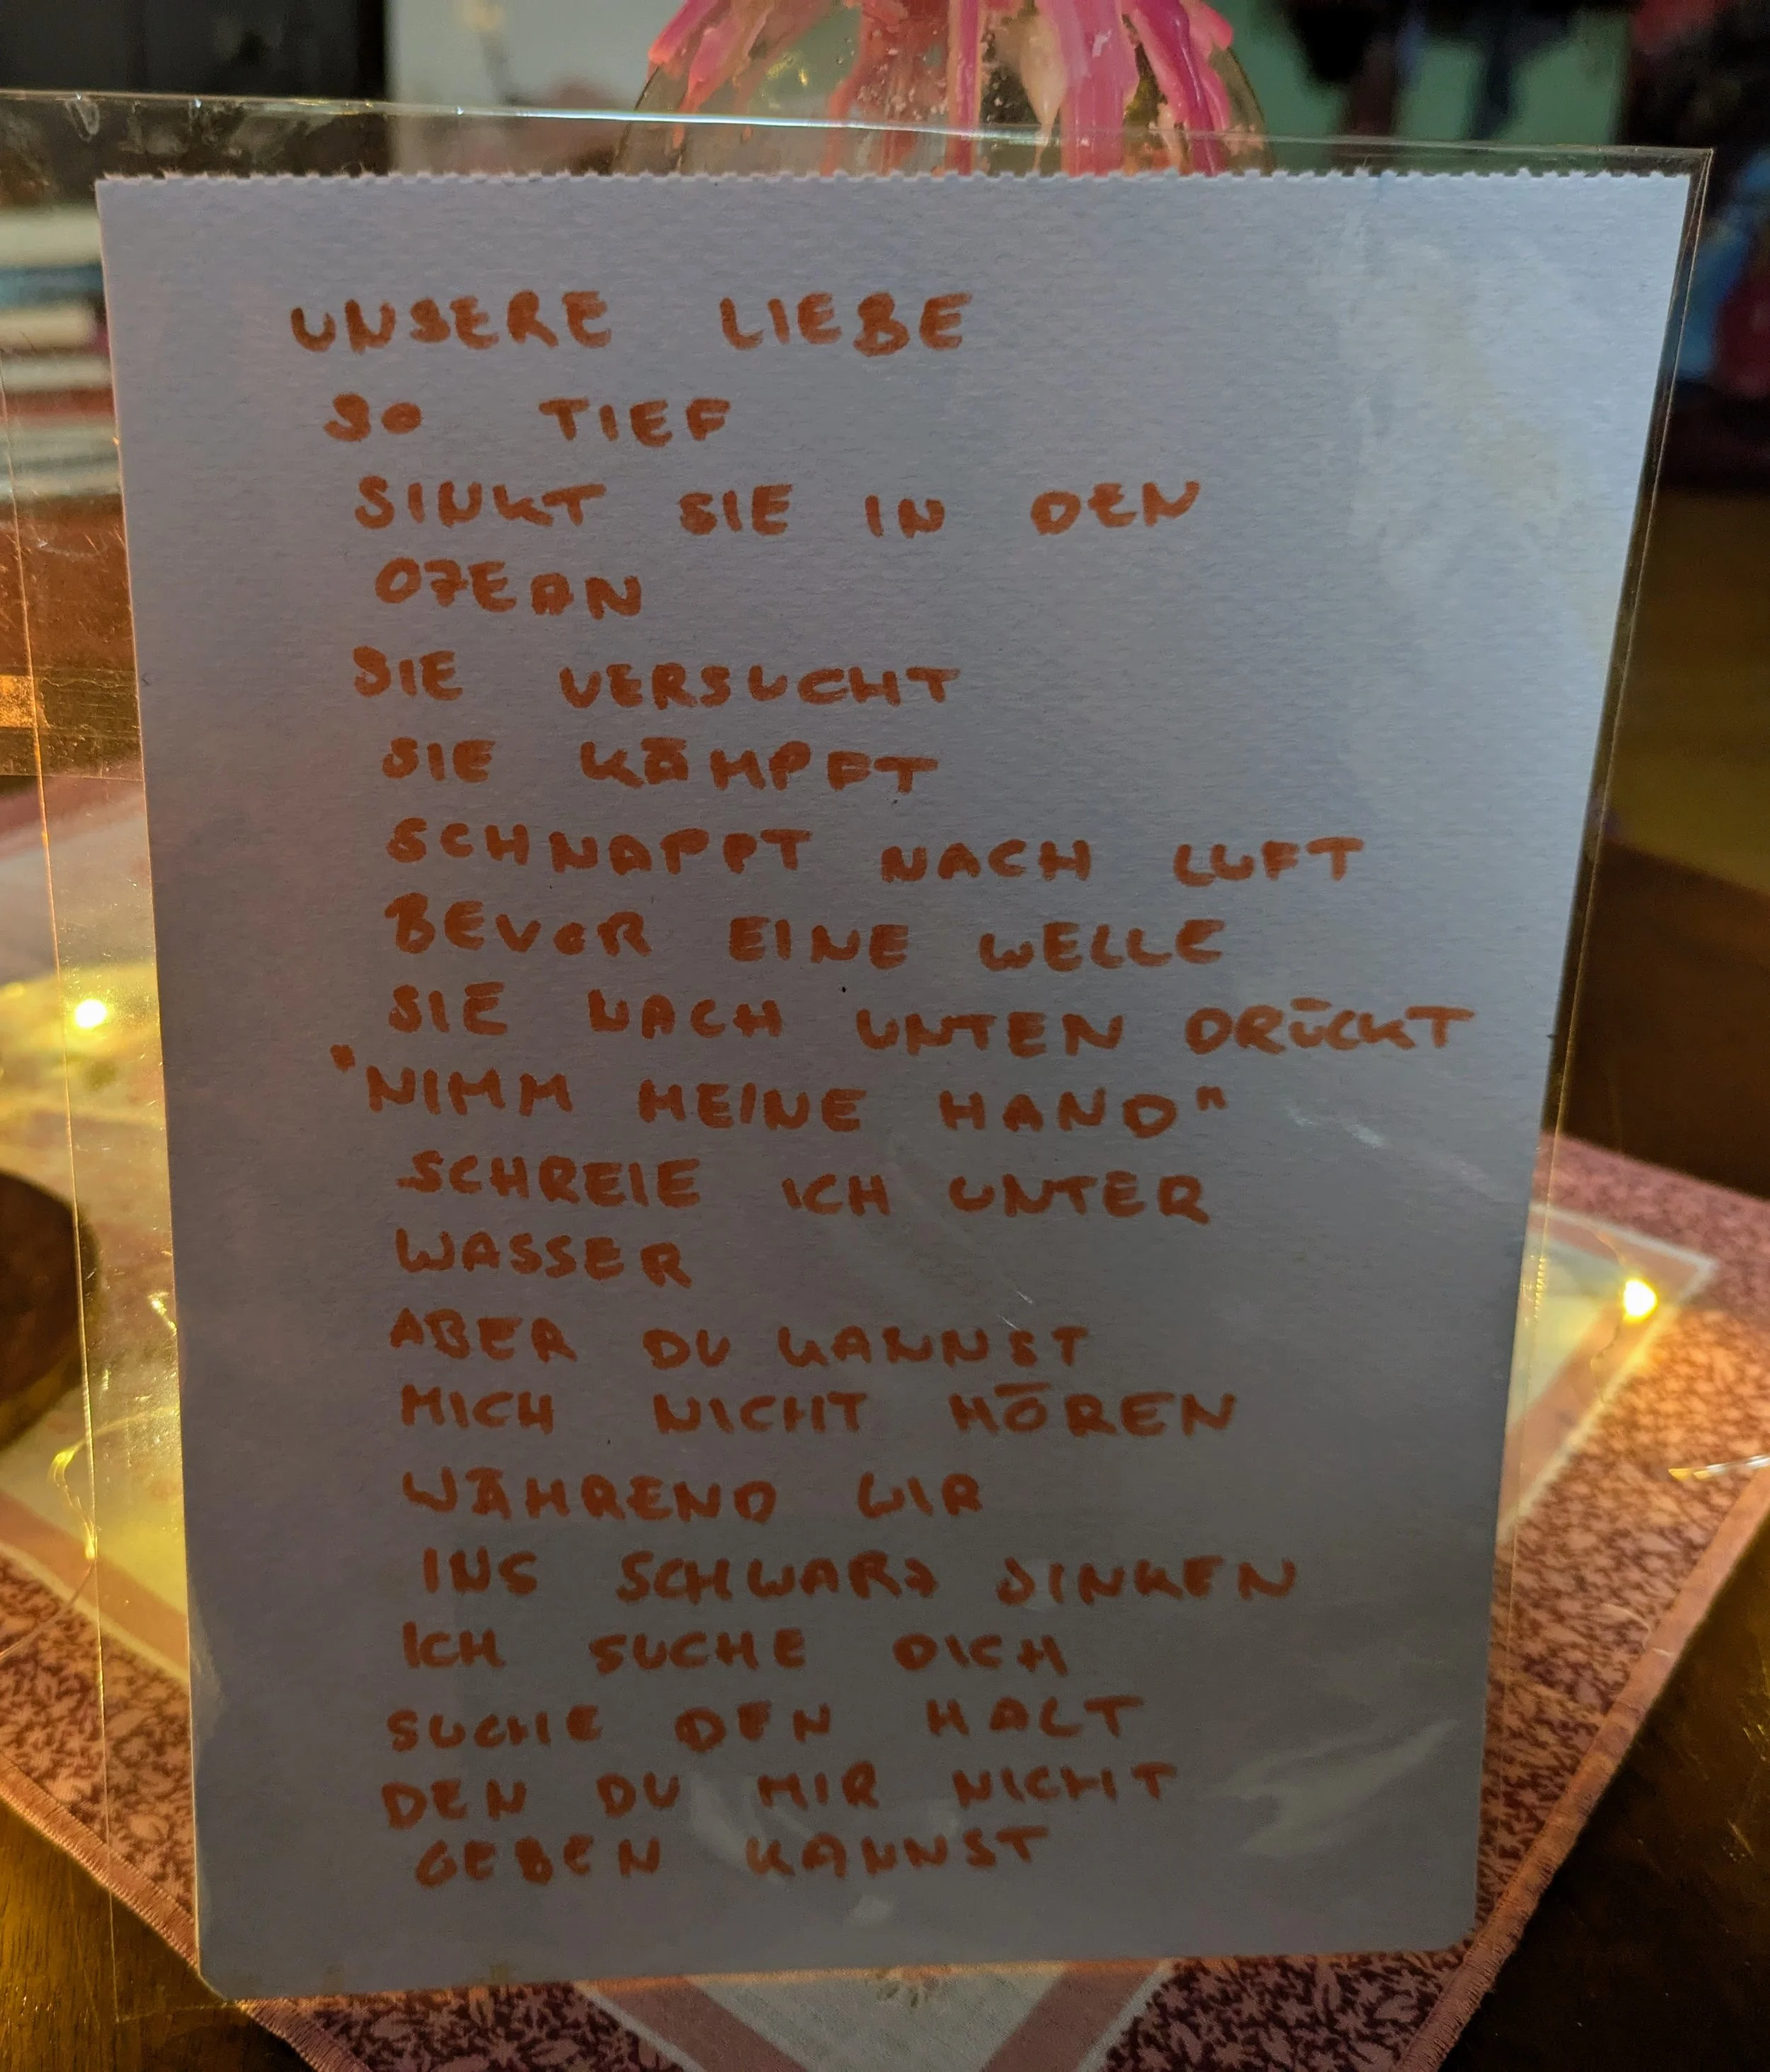 UNSERE LIEBE
SO TIEF
SINKT SIE IN DEN
OZEAN
SIE VERSUCHT
SIE KÄMPFT
SCHNAPPT NACH LUFT
BEVOR EINE WELLE
SIE NACH UNTEN DRÜCKT
"NIMM MEINE HAND"
SCHREIE ICH UNTER
WASSER
ABER DU KANNST
MICH NICHT HÖREN
WÄHREND WIR
INS SCHWARZ SINKEN
ICH SUCHE DICH
SUCHE DEN HALT
DEN DU MIR NICHT
GEBEN KANNST